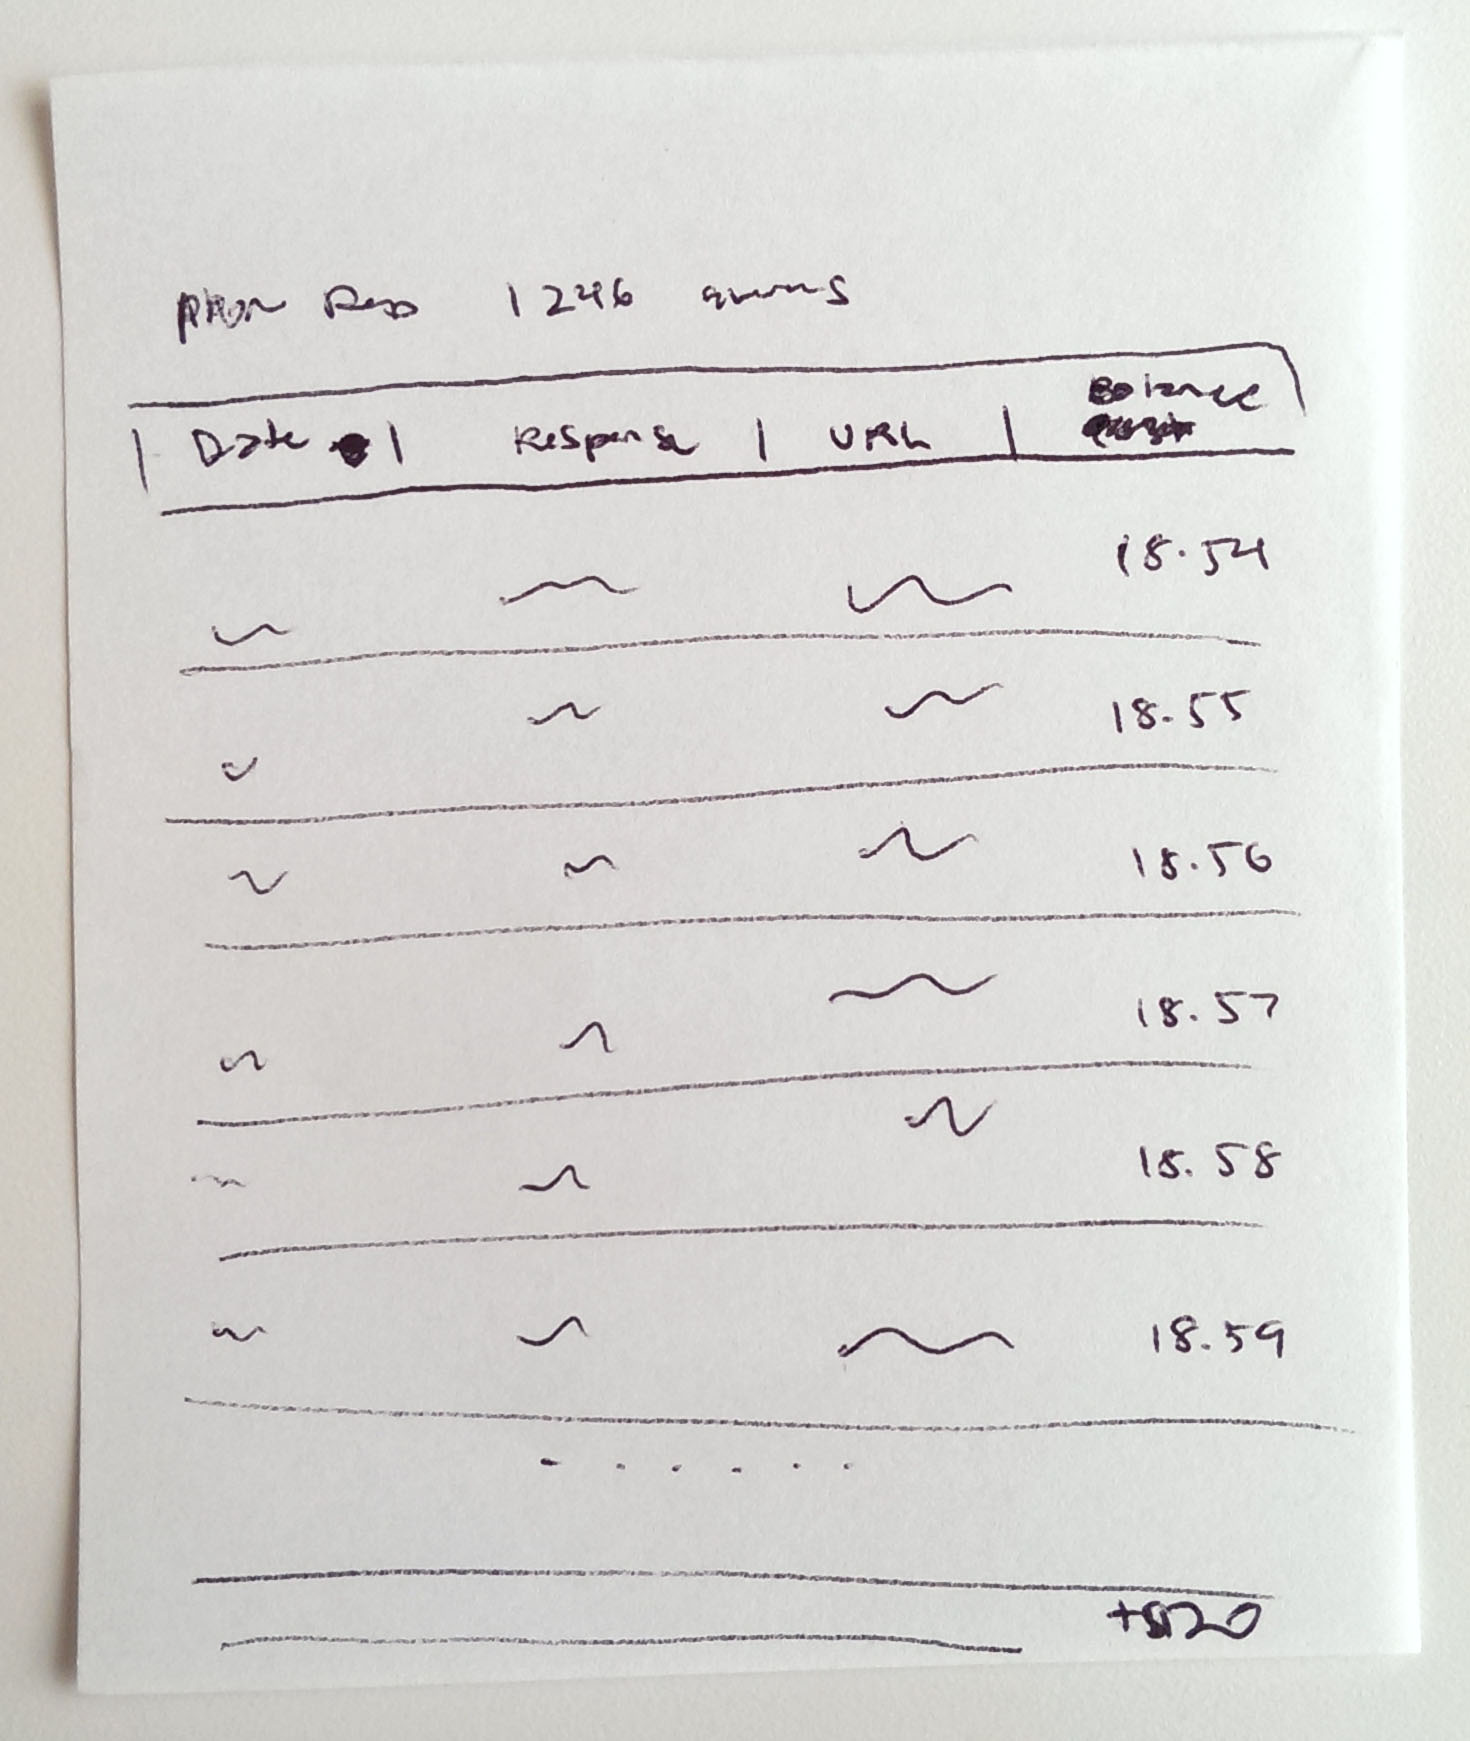 1246
Date Response URL Balance
18.54
18.55
18.56
18.57
18.58
18.59
+$20